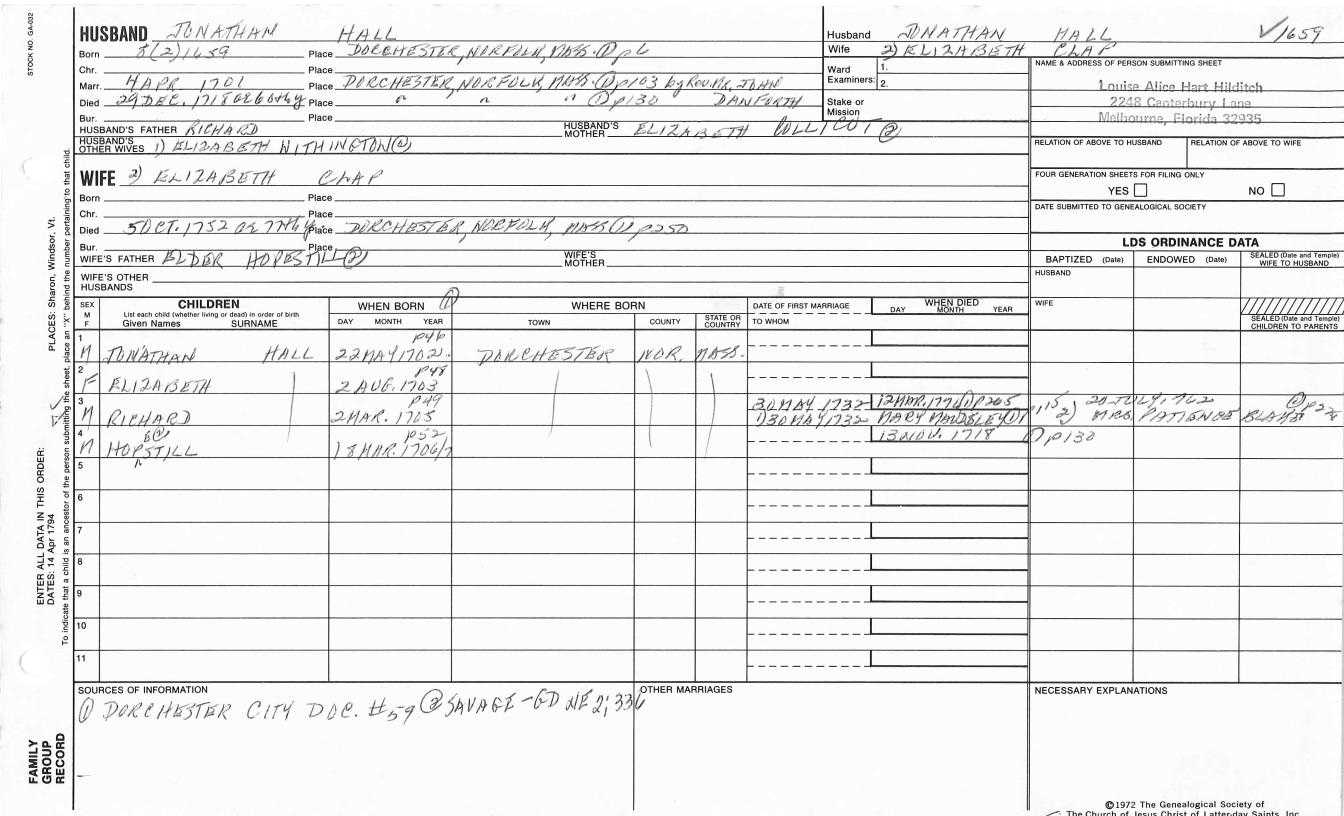 STOCK NO. GA-002
HUSBAND JONATHAN HALL
Born 8(2)1659 Place DORCHESTER, NORFOLK, MASS. ① p6
Chr. Place
Marr. 4 APR 1701 Place DORCHESTER, NORFOLK, MASS. ① p103 by Rev. Mr. JOHN
Died 29 DEC. 1718 Place " " " ① p130 DANFORTH
Bur. Place
HUSBAND'S FATHER RICHARD HUSBAND'S MOTHER ELIZABETH COLLICOT ②
HUSBAND'S OTHER WIVES 1) ELIZABETH WITHINGTON ②
Husband JONATHAN HALL ✓1659
Wife 2) ELIZABETH CLAP
Ward Examiners: 1.
2.
Stake or Mission
NAME & ADDRESS OF PERSON SUBMITTING SHEET
Louise Alice Hart Hilditch
2248 Canterbury Lane
Melbourne, Florida 32935
RELATION OF ABOVE TO HUSBAND RELATION OF ABOVE TO WIFE
FOUR GENERATION SHEETS FOR FILING ONLY
YES NO
DATE SUBMITTED TO GENEALOGICAL SOCIETY
WIFE 2) ELIZABETH CLAP
Born Place
Chr. Place
Died 5 OCT. 1752 Place DORCHESTER, NORFOLK, MASS ① p250
Bur. Place
WIFE'S FATHER ELDER HOPESTILL ② WIFE'S MOTHER
WIFE'S OTHER HUSBANDS
LDS ORDINANCE DATA
BAPTIZED (Date) ENDOWED (Date) SEALED (Date and Temple) WIFE TO HUSBAND
HUSBAND
WIFE
SEALED (Date and Temple) CHILDREN TO PARENTS
SEX M F CHILDREN WHEN BORN ① WHERE BORN DATE OF FIRST MARRIAGE WHEN DIED
List each child (whether living or dead) in order of birth
Given Names SURNAME DAY MONTH YEAR TOWN COUNTY STATE OR COUNTRY TO WHOM DAY MONTH YEAR
1 p46
M JONATHAN HALL 22 MAY 1702 DORCHESTER NOR. MASS.
2 p48
F ELIZABETH 2 AUG. 1703
3 p49 30 MAY 1732 20 JULY, 1762
M RICHARD 2 MAR. 1705 1) 30 MAY 1732 MARY MAUDSLEY 2) MRS. PATIENCE
4 p52 13 NOV. 1718 ① p130
M HOPSTILL 18 MAR. 1706/7
5
6
7
8
9
10
11
SOURCES OF INFORMATION OTHER MARRIAGES NECESSARY EXPLANATIONS
① DORCHESTER CITY DOC. #59 ② SAVAGE-GD NE 2; 336
PLACES: Sharon, Windsor, Vt.
ENTER ALL DATA IN THIS ORDER:
DATES: 14 Apr 1794
To indicate that a child is an ancestor of the person submitting the sheet, place an "X" behind the number pertaining to that child.
FAMILY
GROUP
RECORD
©1972 The Genealogical Society of
The Church of Jesus Christ of Latter-day Saints, Inc.